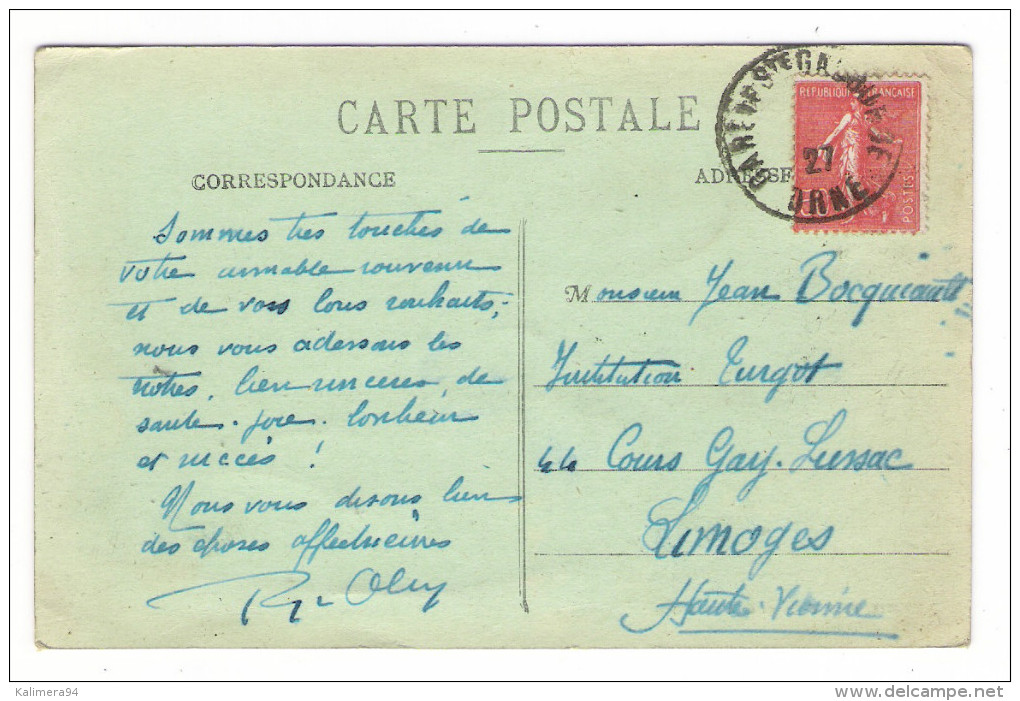 CARTE POSTALE
CORRESPONDANCE
ADRESSE
RÉPUBLIQUE FRANÇAISE
POSTES
27
ORNE
Sommes très touchés de
votre aimable souvenir
et de vos bons souhaits;
nous vous adessons les
nôtres, bien sincères de
santé. joie. bonheur
et succès !
Nous vous disons bien
des choses affectueuses
Monsieur Jean
Institution Turgot
44 Cours Gay-Lussac
Limoges
Haute-Vienne
Kalimera94
www.delcampe.net